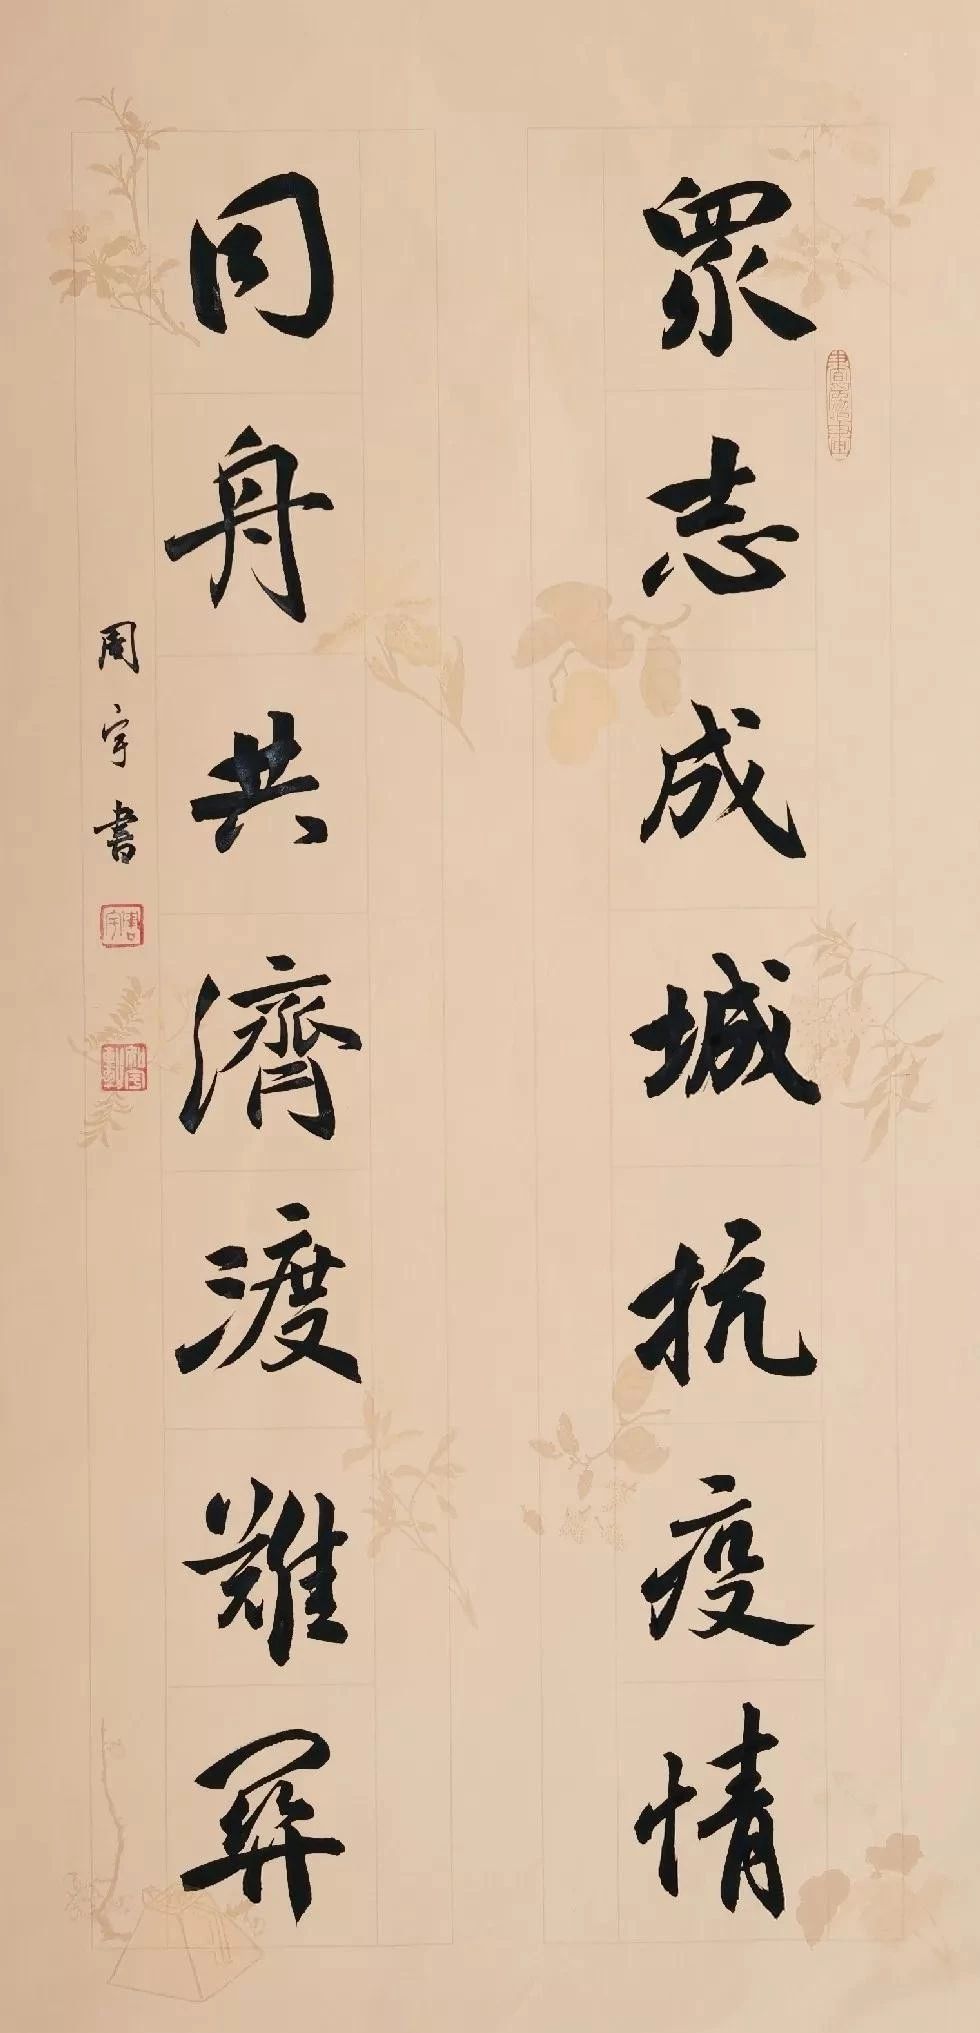 眾志成城抗疫情
同舟共濟渡難關
周宇書